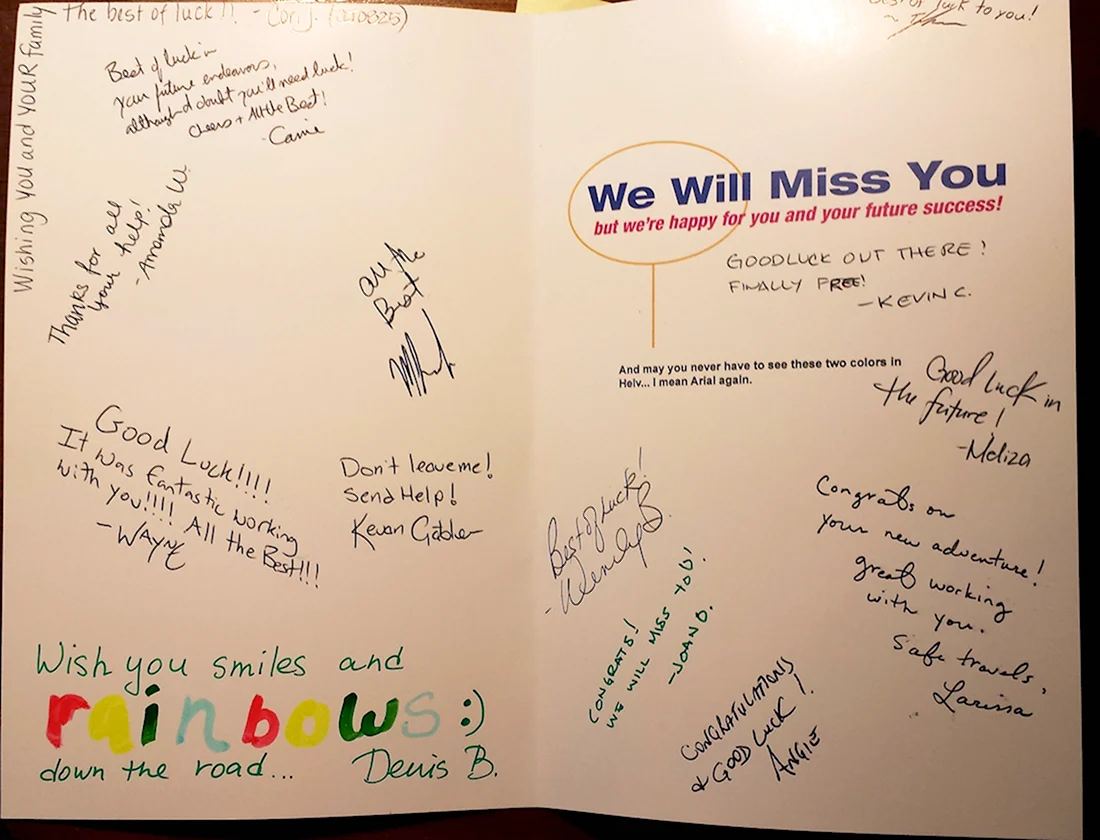 Wishing you and your family
the best of luck!! - Cori J. (040825)
Best of luck in
your future endeavors,
although I doubt you'll need luck!
Cheers + All the Best!
- Carrie
Thanks for all
your help!
- Amanda W.
All the
Best
Good Luck!!!!
It was fantastic working
with you!!!! All the Best!!!
- WAYNE
Don't leave me!
Send Help!
Kevan Gabler
Wish you smiles and
rainbows :)
down the road... Denis B.
luck to you!
We Will Miss You
but we're happy for you and your future success!
GOODLUCK OUT THERE!
FINALLY FREE!
- KEVIN C.
And may you never have to see these two colors in
Helv... I mean Arial again.
Good Luck in
the future!
- Meliza
Best of Luck!
- Wendy B.
Congrats on
your new adventure!
great working
with you.
Safe travels,
Larissa
CONGRATS!
WE WILL MISS YOU!
- JOAN D.
CONGRATULATIONS
& GOOD LUCK!
ANGIE